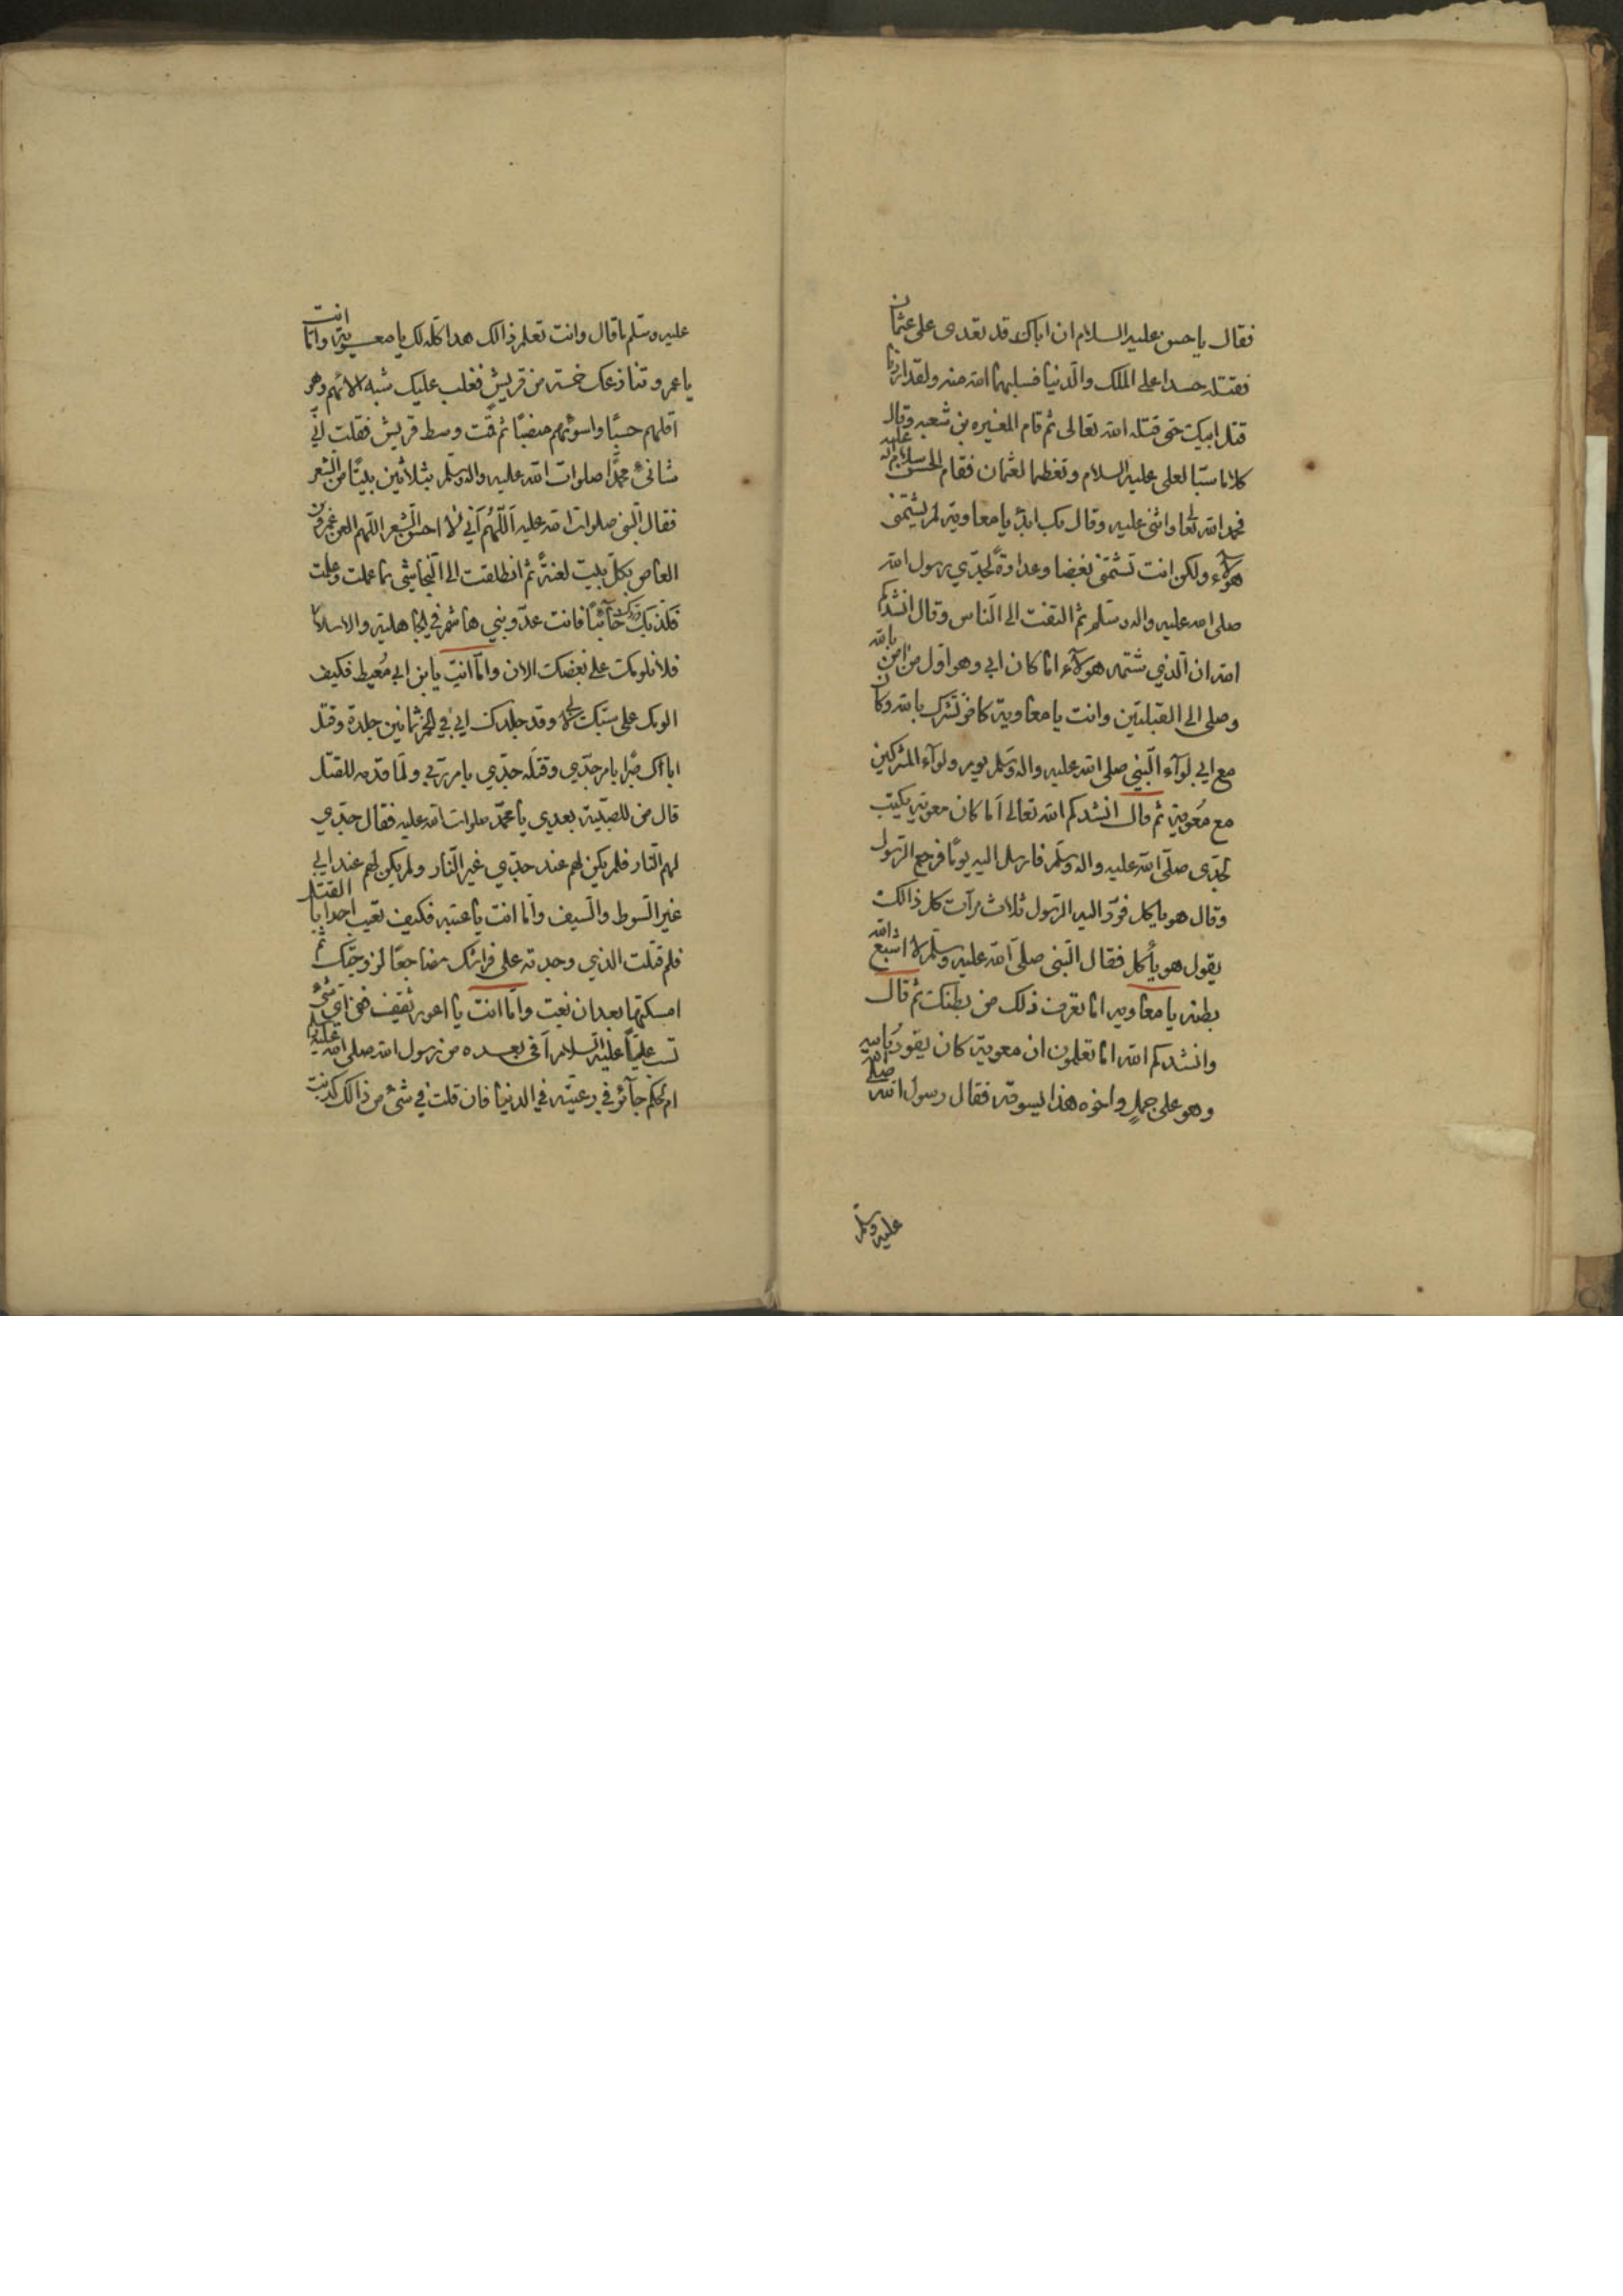 فقال يا حسن عليه السلام ان اباك قد تعدى على عثمان
فقتله حسدا على الملك والدنيا فسلبهما الله منه ولقد اردنا
قتل ابيك حتى قتله الله تعالى ثم قام المغيره بن شعبه وقال
كلاما سبّا لعلى عليه السلام وتعظيما لعثمان فقام الحسن عليه السلام
فحمد الله تعا واثنى عليه وقال بك ابدُ يا معاوية لم يشتمنى
هؤلاء ولكن انت تشتمنى بغضا وعداوةً لجدّي رسول الله
صلى الله عليه واله وسلم ثم التفت الى الناس وقال انشدكم
الله ان الّذي شتمه هولآء اما كان ابي وهو اول من امن بالله
وصلى الى القبلتين وانت يا معاوية كافر تشرك بالله وكان
مع ابي لوآء النّبي صلى الله عليه واله وسلم يوم ولوآء المشركين
مع معوية ثم قال انشدكم الله تعالى اما كان معوية يكتب
لجدّى صلّى الله عليه واله وسلم فارسل اليه يومًا فرجع الرسول
وقال هو ياكل فردّ اليه الرّسول ثلاث مرآت كل ذالك
يقول هو يأكل فقال النّبى صلى الله عليه وسلّم لا اشبع الله
بطنه يا معاويه اما تعرف ذلك من بطنك ثم قال
وانشدكم الله اما تعلمون ان معوية كان يقود بابيه
وهو على جملٍ واخوه هذا يسوقه فقال رسول الله صلى الله
عليه وسلم
عليه وسلم ما قال وانت تعلم ذالك هدا كله لك يا معوية واما انت
يا عمرو تنازعك خمسة من قريشٍ فغلب عليك شبه الائهم وهو
اقلهم حسبًا واسوئهم منصبًا ثم قمت وسط قريش فقلت انّي
شانئ محمدًا صلوات الله عليه واله وسلم بثلاثين بيتًا من الشعر
فقال النّبى صلوات الله عليه اللّهُم انّي لا احسن الشعر اللّهم العن عمرو بن
العاص بكلّ بيت لعنةً ثم انطلقت الى النّجاشي بما عملت وعلمت
فكذبك وردّك خآئبًا فانت عدّو بني هاشم في الجاهلية والاسلام
فلا نلومك على بغضك الان وامّا انت يا بن ابي مُعيط فكيف
الومك على سبّك لعلي وقد جلدك ابي في الخمر ثمانين جلدة وقتل
اباك صبرًا بامر جدّي وقتله جدّي بامر ربّي ولمّا قدمه للقتل
قال من للصبّية بعدى يا محمّد صلوات الله عليه فقال جدّي
لهم النّار فلم يكن لهم عند جدّي غير النّار ولم يكن لهم عند ابي
غير السّوط والسّيف وامّا انت يا عتبه فكيف تعيب احدا بالقتل
فلم قتلت الذي وجدته على فراشك مضاجعًا لزوجتك ثم
امسكتها بعد ان بغت وامّا انت يا اعور ثقيف ففي اي شئ
تسب عليًّا عليه السّلام أفى بعده من رسول الله صلى الله عليه وسلم
ام لحكم جآئر في رعيّته في الدنيا فان قلت في شئ من ذالك كذبت